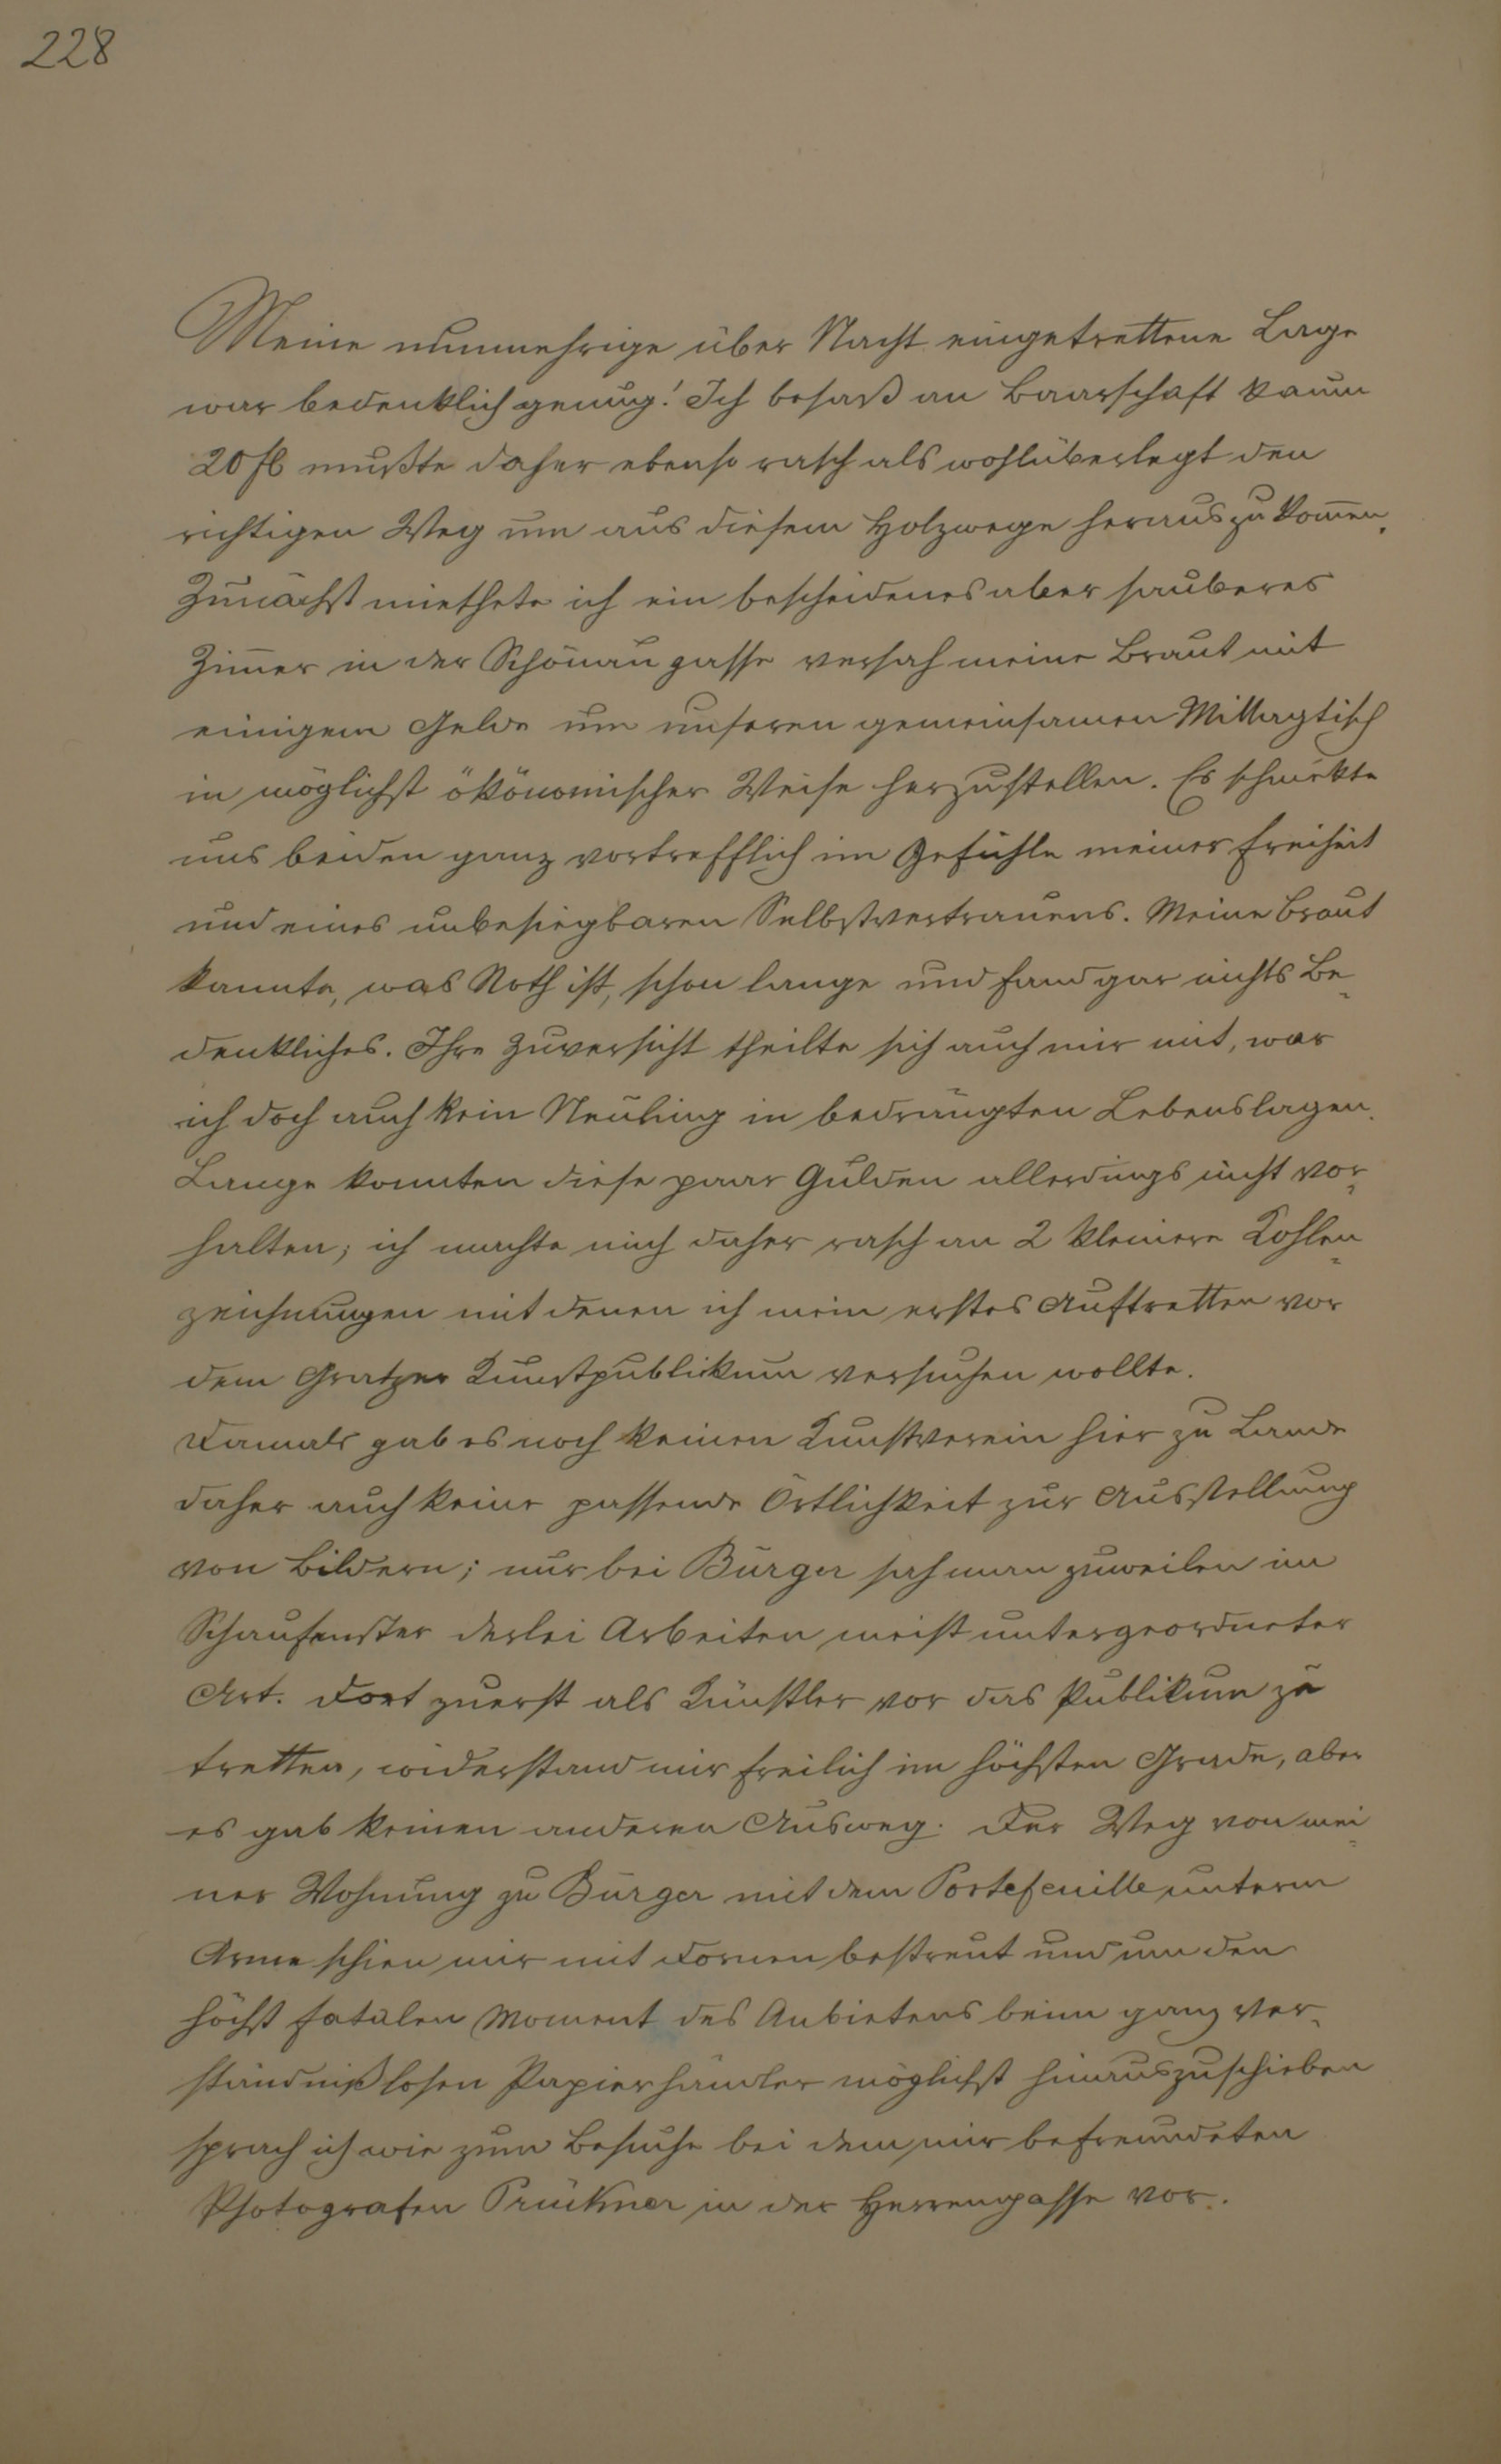 228
Meine nunmehrige über Nacht eingetrettene Lage
war bedenklich genug! Ich besaß an Baarschaft kaum
20 fl mußte daher ebenso rasch als wohlüberlegt den
richtigen Weg um aus diesem Holzwege herauszukom̄en.
Zunächst miethete ich ein bescheidenes aber sauberes
Zim̄er in der Schönaugasse versah meine Braut mit
einigem Gelde um unseren gemeinsamen Mittagtisch
in möglichst ökönomischer Weise herzustellen. Es schmekte
uns beiden ganz vortrefflich im Gefühle meiner Freiheit
und eines unbesiegbaren Selbstvertrauens. Meine Braut
kannte, was Noth ist, schon lange und fand gar nichts Be-
denkliches. Ihre Zuversicht theilte sich auch mir mit, war
ich doch auch kein Neuling in bedrängten Lebenslagen.
Lange konnten diese paar Gulden allerdings nicht vor-
halten; ich machte mich daher rasch an 2 kleinere Kohlen-
zeichnungen mit denen ich mein erstes Auftretten vor
dem Gratzer Kunstpublikum versuchen wollte.
Damals gab es noch keinen Kunstverein hier zu Lande
daher auch keine passende Örtlichkeit zur Ausstellung
von Bildern; nur bei Bürger sah man zuweilen im
Schaufenster derlei Arbeiten meist untergeordneter
Art. Dort zuerst als Künstler vor das Publikum zu
tretten, widerstand mir freilich im höchsten Grade, aber
es gab keinen anderen Ausweg. Der Weg von mei-
ner Wohnung zu Bürger mit dem Portefeuille unterm
Arme schien mir mit Dornen bestreut und um den
höchst fatalen Moment des Anbietens beim ganz ver-
ständnißlosen Papierhändler möglichst hinauszuschieben
sprach ich wie zum Besuche bei dem mir befreundeten
Photografen Prükner in der Herrengasse vor.